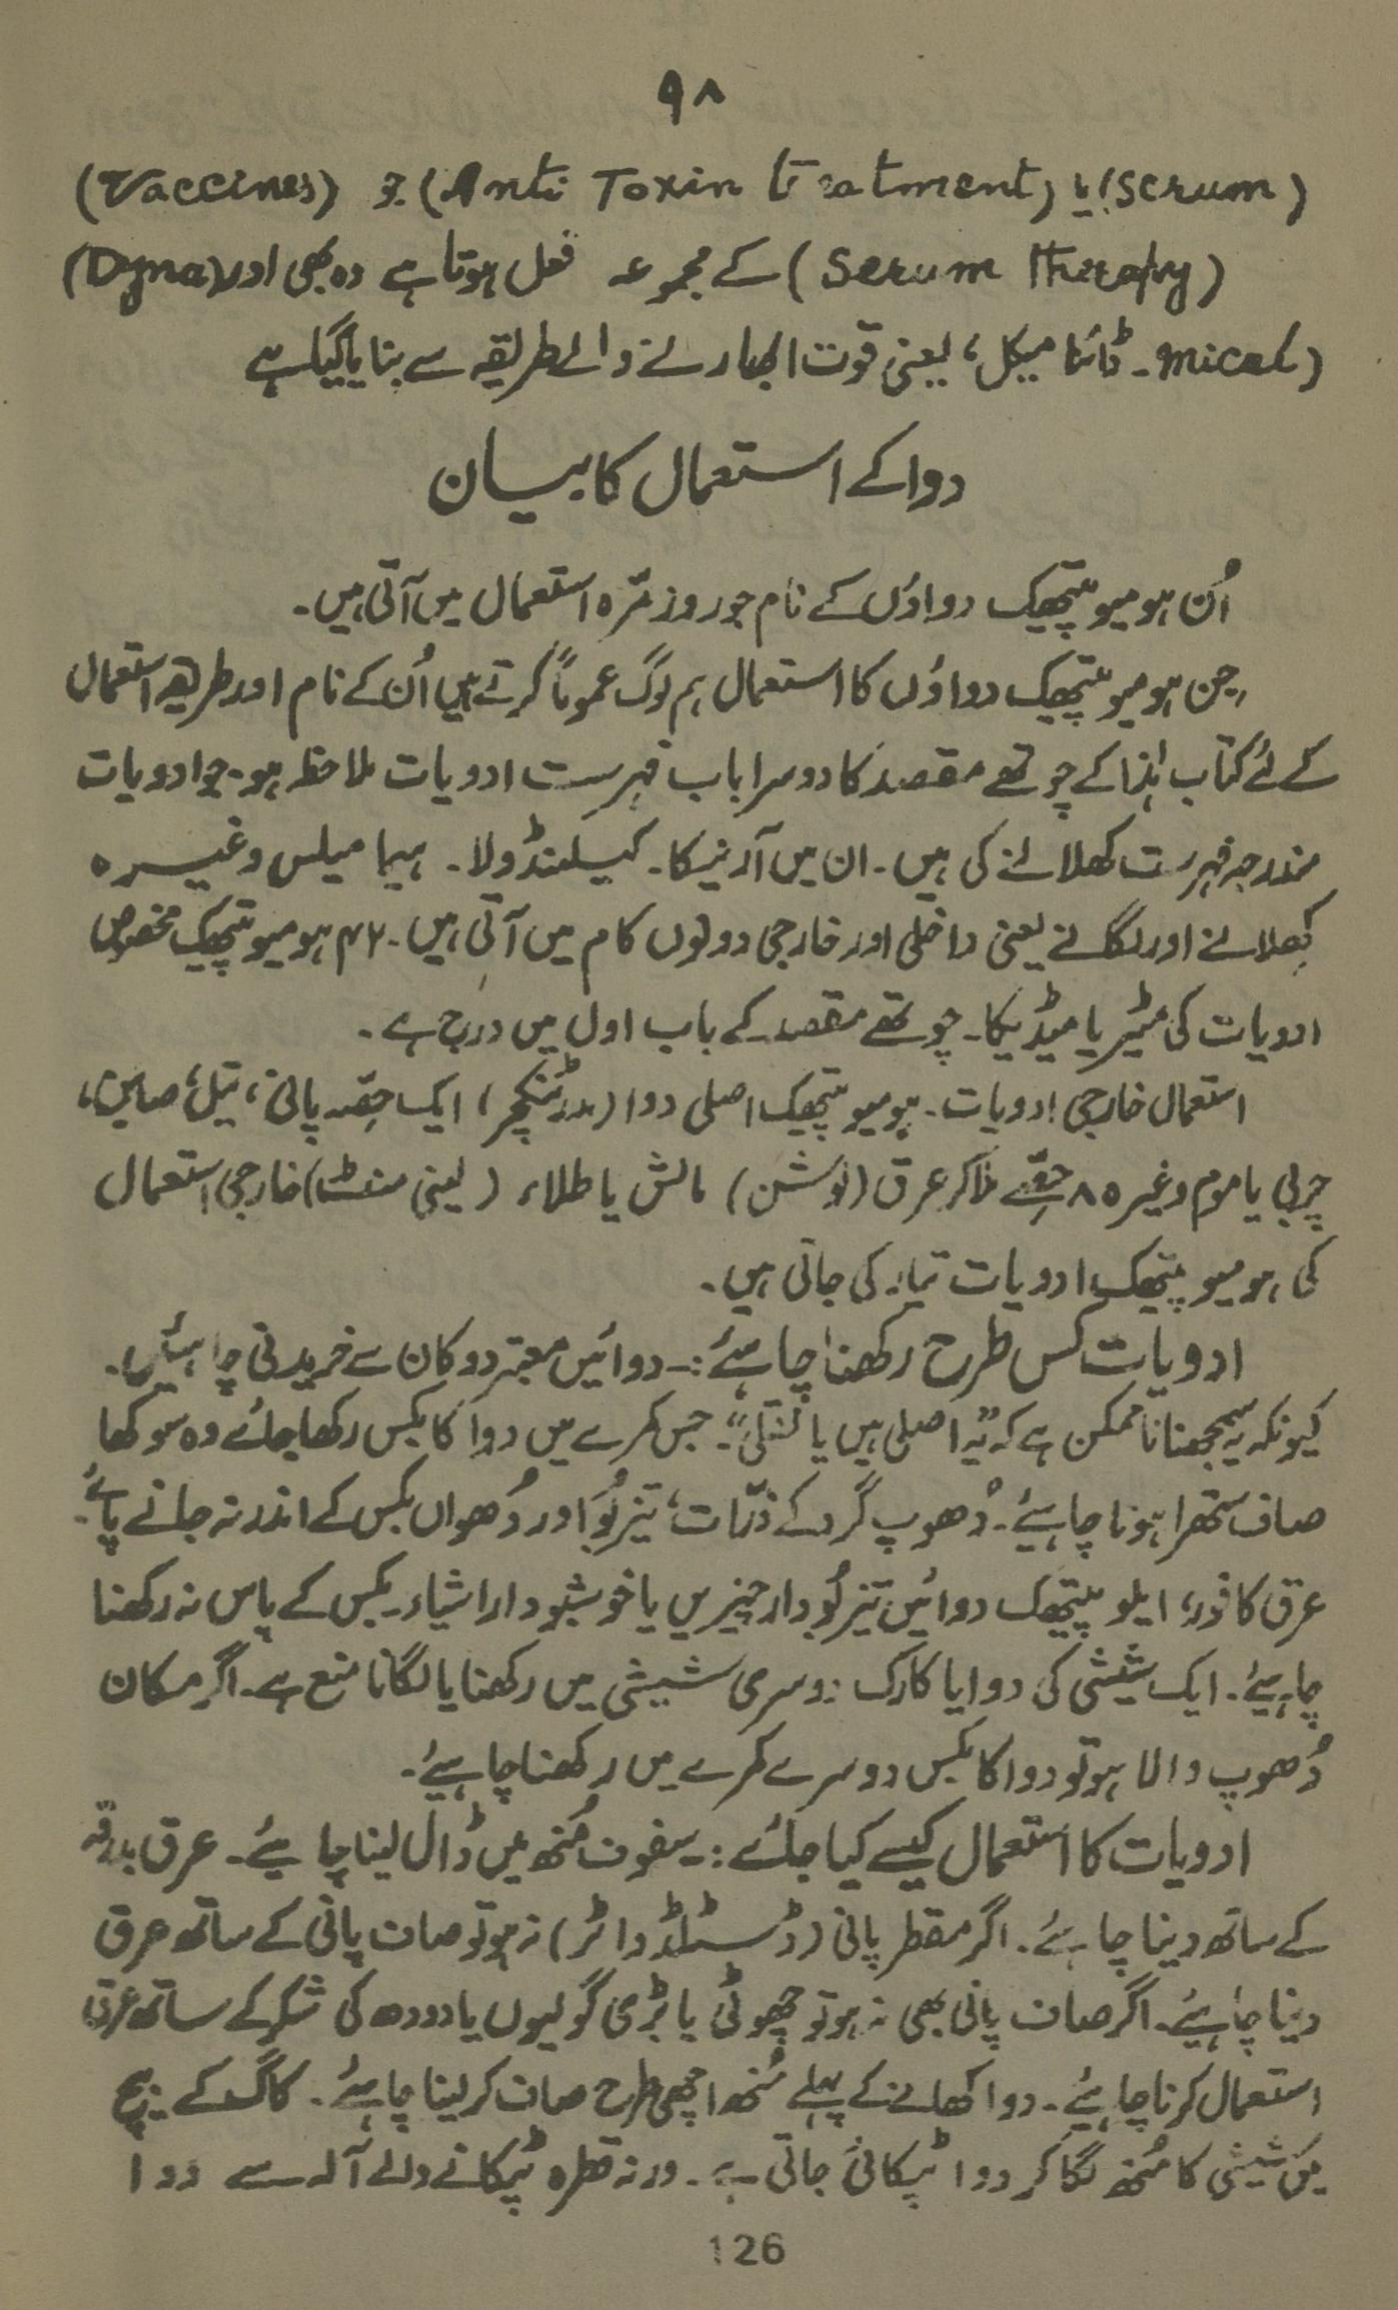 ۹۸
(Serum) یا (Anti Toxin treatment) جو (Vaccines)
(Serum Therapy) کے مجموعہ فعل ہوتا ہے وہ بھی اور (Dyna
mical ـ ڈائنا میکل) یعنی قوت ابھارنے والے طریقہ سے بنایا گیا ہے
دوا کے استعمال کا بیان
اُن ہومیوپیتھیک دواؤں کے نام جو روز مرّہ استعمال میں آتی ہیں۔
جن ہومیوپیتھیک دواؤں کا استعمال ہم لوگ عموماً کرتے ہیں اُن کے نام اور طریقہ استعمال
کے لئے کتاب ہٰذا کے چوتھے مقصد کا دوسرا باب فہرست ادویات ملاحظہ ہو۔ جو ادویات
مندرجہ فہرست کھلانے کی ہیں۔ ان میں آرنیکا۔ کیلنڈولا۔ ہیما میلس وغیرہ
کھلانے اور لگانے یعنی داخلی اور خارجی دونوں کام میں آتی ہیں۔ ۴۲ ہومیوپیتھیک مخصوص
ادویات کی مٹیریا میڈیکا۔ چوتھے مقصد کے باب اول میں درج ہے۔
استعمال خارجی ادویات۔ ہومیوپیتھیک اصلی دوا (مدر ٹنکچر) ایک حصّہ پانی، تیل، صابن،
چربی یا موم وغیرہ ۸ حصّے ملا کر عرق (لوشن) مالش یا طلاء (لینی منٹ) خارجی استعمال
کی ہومیوپیتھک ادویات تیار کی جاتی ہیں۔
ادویات کس طرح رکھنا چاہئے :۔ دوائیں معتبر دوکان سے خریدنی چاہئیں۔
کیونکہ یہ سمجھنا ناممکن ہے کہ ”یہ اصلی ہیں یا نقلی“۔ جس کمرے میں دوا کا بکس رکھا جائے وہ سوکھا
صاف ستھرا ہونا چاہیئے۔ دُھوپ گرد کے ذرّات، تیز بُو اور دُھواں بکس کے اندر نہ جانے پائے۔
عرق کافور، ایلوپیتھیک دوائیں تیز بُو دار چیزیں یا خوشبو دار اشیاء بکس کے پاس نہ رکھنا
چاہیئے۔ ایک شیشی کی دوا یا کارک دوسری شیشی میں رکھنا یا لگانا منع ہے۔ اگر مکان
دُھوپ والا ہو تو دوا کا بکس دوسرے کمرے میں رکھنا چاہیئے۔
ادویات کا استعمال کیسے کیا جائے :۔ سفوف مُنھ میں ڈال لینا چاہیئے۔ عرق بدرقہ
کے ساتھ دینا چاہئے۔ اگر مقطر پانی (ڈسٹلڈ واٹر) نہ ہو تو صاف پانی کے ساتھ عرق
دینا چاہیئے۔ اگر صاف پانی بھی نہ ہو تو چھوٹی یا بڑی گولیوں یا دودھ کی شکر کے ساتھ عرق
استعمال کرنا چاہیئے۔ دوا کھانے کے پہلے مُنھ اچھی طرح صاف کر لینا چاہئے۔ کاگ کے بیچ
میں شیشی کا مُنھ لگا کر دوا ٹپکائی جاتی ہے۔ ورنہ قطرہ ٹپکانے والے آلہ سے دوا
126